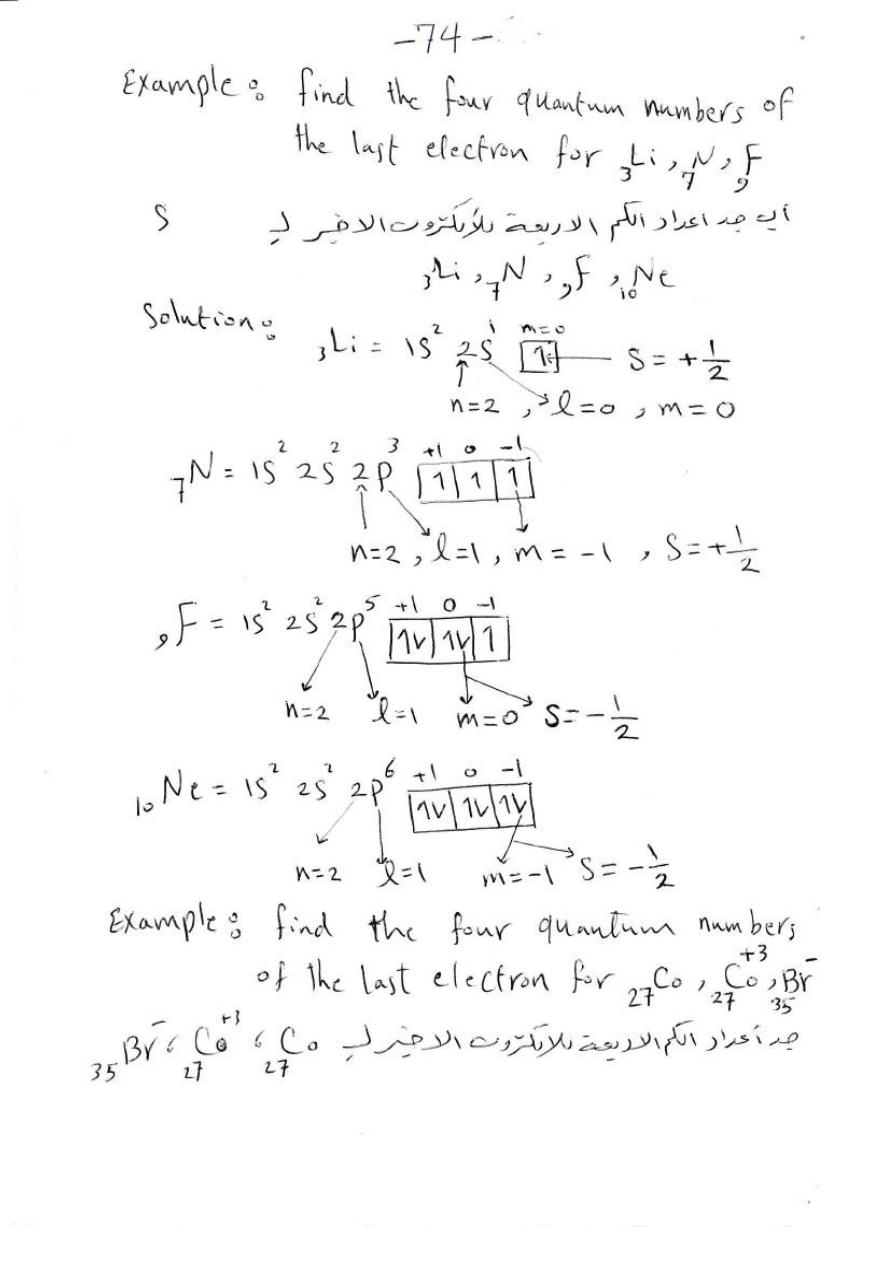 -74-
Example: find the four quantum numbers of
the last electron for ₃Li, ₇N, ₉F
جد اعداد الكم الاربعة للألكترون الاخير لـ
₃Li, ₇N, ₉F, ₁₀Ne
Solution:
₃Li = 1S² 2S¹ m=0 [1] S = +1/2
n=2, l=0, m=0
₇N = 1S² 2S² 2P³ +1 0 -1 [1|1|1]
n=2, l=1, m=-1, S=+1/2
₉F = 1S² 2S² 2P⁵ +1 0 -1 [1↓|1↓|1]
n=2 l=1 m=0 S=-1/2
₁₀Ne = 1S² 2S² 2P⁶ +1 0 -1 [1↓|1↓|1↓]
n=2 l=1 m=-1 S=-1/2
Example: find the four quantum numbers
of the last electron for ₂₇Co, ₂₇Co⁺³, ₃₅Br⁻
جد أعداد الكم الاربعة للألكترون الاخير لـ ₂₇Co ، ₂₇Co⁺³ ، ₃₅Br⁻